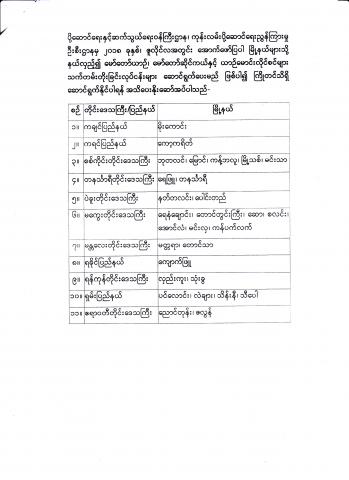 ပို့ဆောင်ရေးနှင့်ဆက်သွယ်ရေးဝန်ကြီးဌာန၊ ကုန်းလမ်းပို့ဆောင်ရေးညွှန်ကြားမှု
ဦးစီးဌာနမှ ၂၀၁၈ ခုနှစ်၊ ဇူလိုင်လအတွင်း အောက်ဖော်ပြပါ မြို့နယ်များသို့
နယ်လှည့်၍ မော်တော်ယာဉ်၊ မော်တော်ဆိုင်ကယ်နှင့် ယာဉ်မောင်းလိုင်စင်များ
သက်တမ်းတိုးမြှင့်ခြင်းလုပ်ငန်းများ ဆောင်ရွက်ပေးမည် ဖြစ်ပါ၍ ကြိုတင်သိရှိ
ဆောင်ရွက်နိုင်ပါရန် အသိပေးနှိုးဆော်အပ်ပါသည်-
စဉ် တိုင်းဒေသကြီး/ပြည်နယ် မြို့နယ်
၁။ ကချင်ပြည်နယ် မိုးကောင်း
၂။ ကရင်ပြည်နယ် ကော့ကရိတ်
၃။ စစ်ကိုင်းတိုင်းဒေသကြီး ဘုတလင်၊ မြောင်၊ ကန့်ဘလူ၊ မြို့သစ်၊ မင်းသာ
၄။ တနင်္သာရီတိုင်းဒေသကြီး ရေဖြူ၊ တနင်္သာရီ
၅။ ပဲခူးတိုင်းဒေသကြီး နတ်တလင်း၊ ပေါင်းတည်
၆။ မကွေးတိုင်းဒေသကြီး ရေနံချောင်း၊ တောင်တွင်းကြီး၊ ဆော၊ စလင်း၊
အောင်လံ၊ မင်းလှ၊ ကန်ပက်လက်
၇။ မန္တလေးတိုင်းဒေသကြီး မတ္တရာ၊ တောင်သာ
၈။ ရခိုင်ပြည်နယ် ကျောက်ဖြူ
၉။ ရန်ကုန်တိုင်းဒေသကြီး လှည်းကူး၊ သုံးခွ
၁၀။ ရှမ်းပြည်နယ် ပင်လောင်း၊ လဲချား၊ သိန်းနီ၊ သီပေါ
၁၁။ ဧရာဝတီတိုင်းဒေသကြီး ညောင်တုန်း၊ ဇလွန်